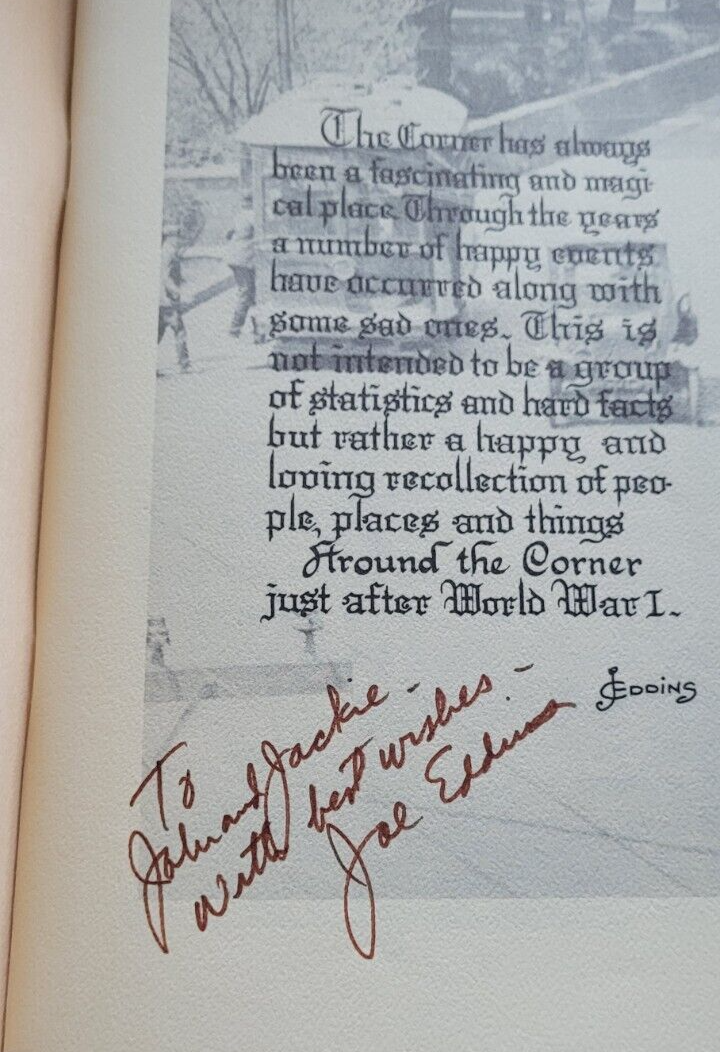 The Corner has always
been a fascinating and magi-
cal place. Through the years
a number of happy events
have occurred along with
some sad ones. This is
not intended to be a group
of statistics and hard facts
but rather a happy and
loving recollection of peo-
ple, places and things
Around the Corner
just after World War I.
JEddins
To
John and Jackie -
with best wishes -
Joe Eddins